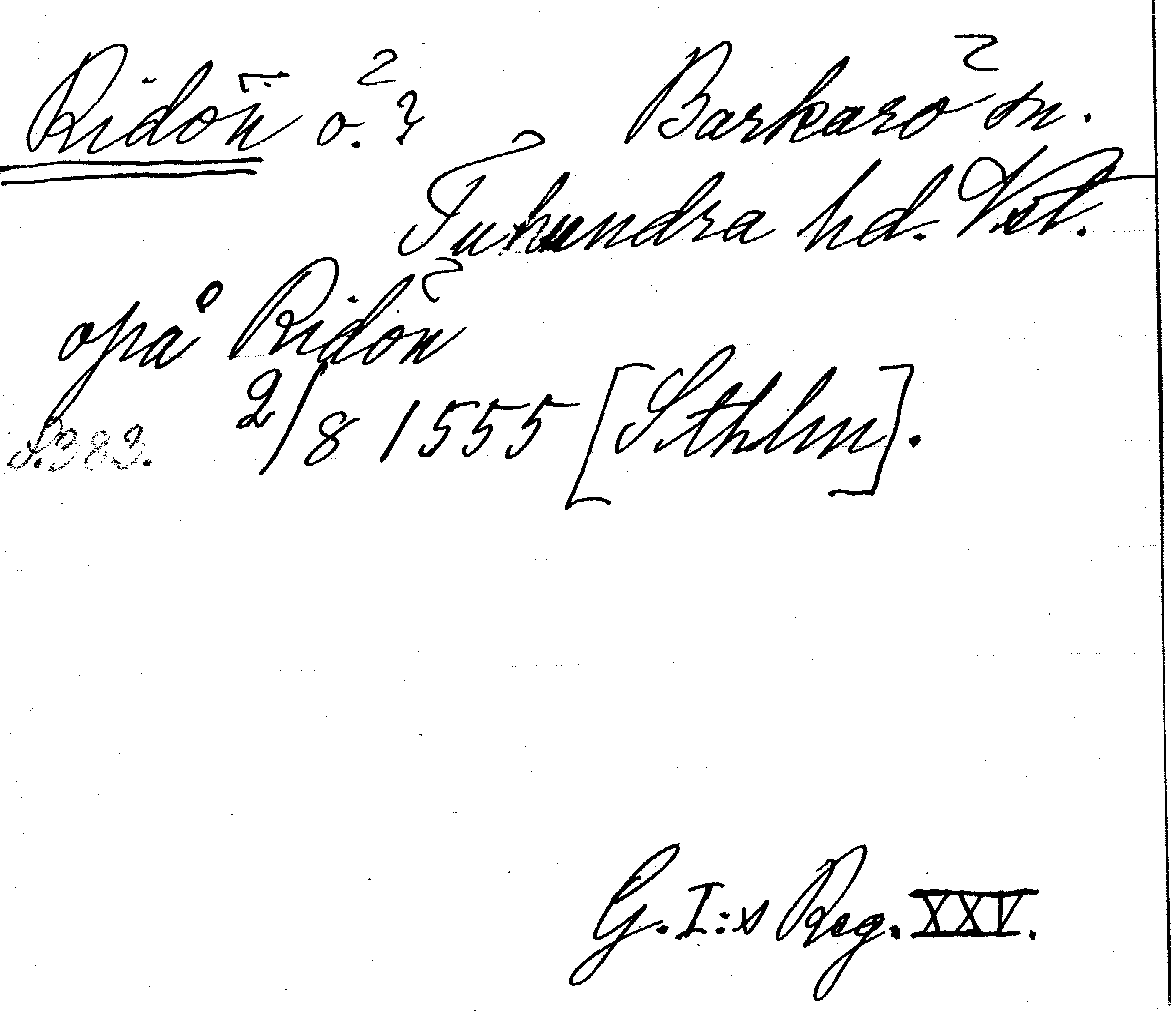 Ridön ö.? Barkarö sn.
Tuhundra hd. Vstl.
opå Ridön
S. 383. 2/8 1555 [Sthlm].
G. I:s Reg. XXV.